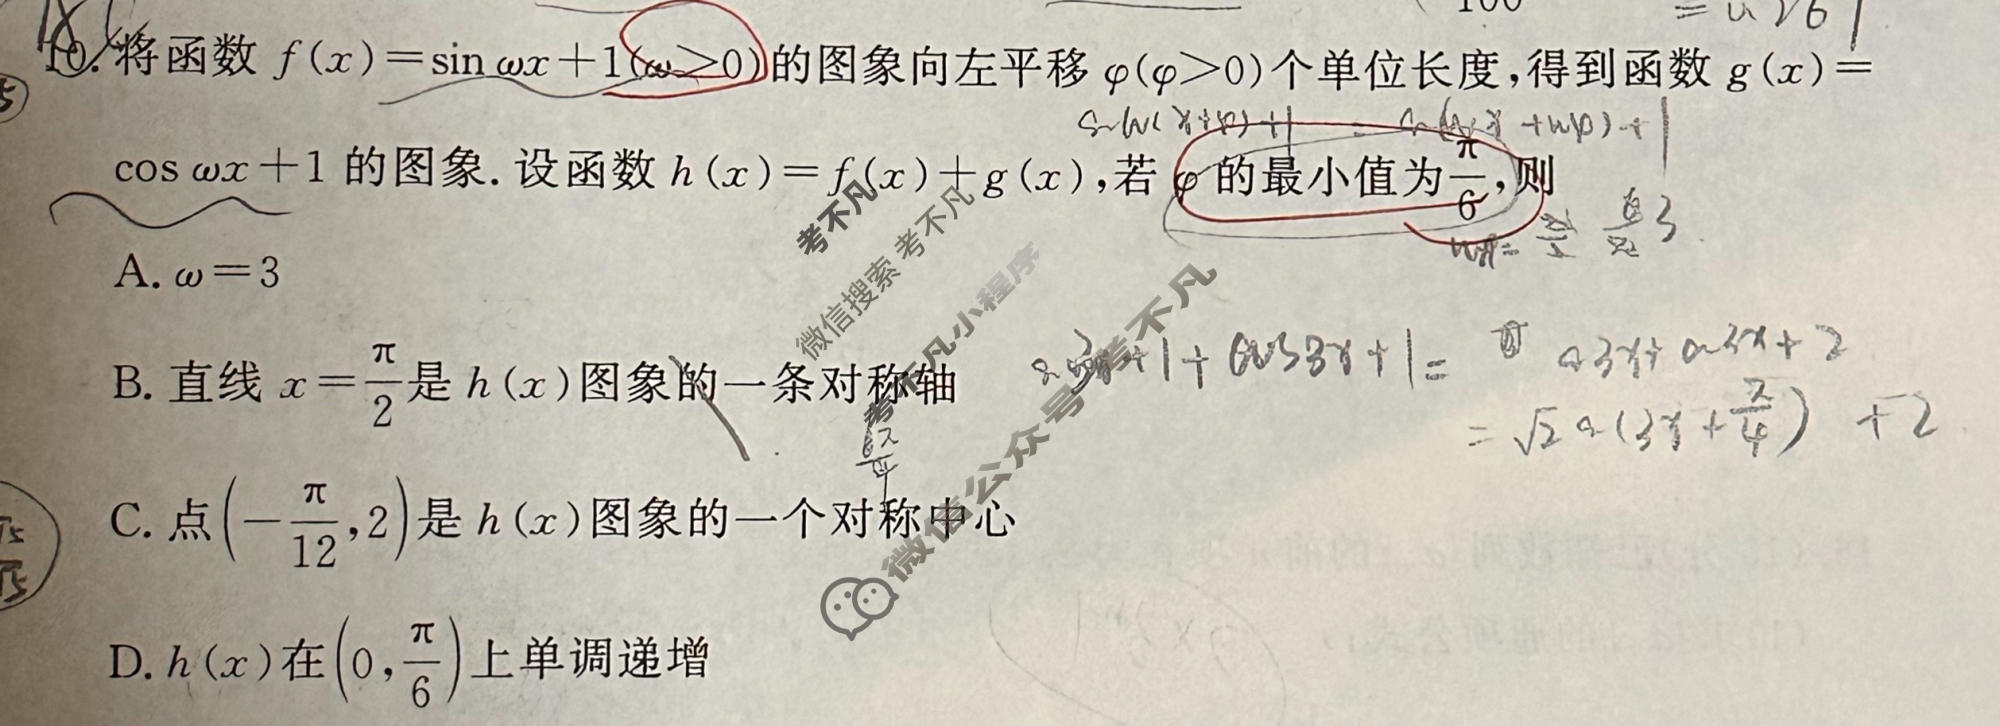 10. 将函数 f(x)=sin ωx+1(ω>0)的图象向左平移 φ(φ>0)个单位长度,得到函数 g(x)=
cos ωx+1 的图象. 设函数 h(x)=f(x)+g(x),若 φ 的最小值为π/6,则
A. ω=3
B. 直线 x=π/2是 h(x)图象的一条对称轴
+1+cos3x+1=
=√2 (3x+π/4)+2
C. 点(-π/12,2)是 h(x)图象的一个对称中心
D. h(x)在(0,π/6)上单调递增
考不凡
微信搜索 考不凡
考不凡小程序
微信公众号 考不凡